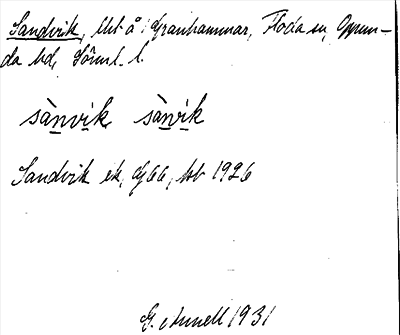 Sandvik, lht å Granhammar, Floda sn, Oppun-
da hd, Sörml. l.
sànvik sànvik
Sandvik ek, Gj 66, hb 1926
G. Annell 1931